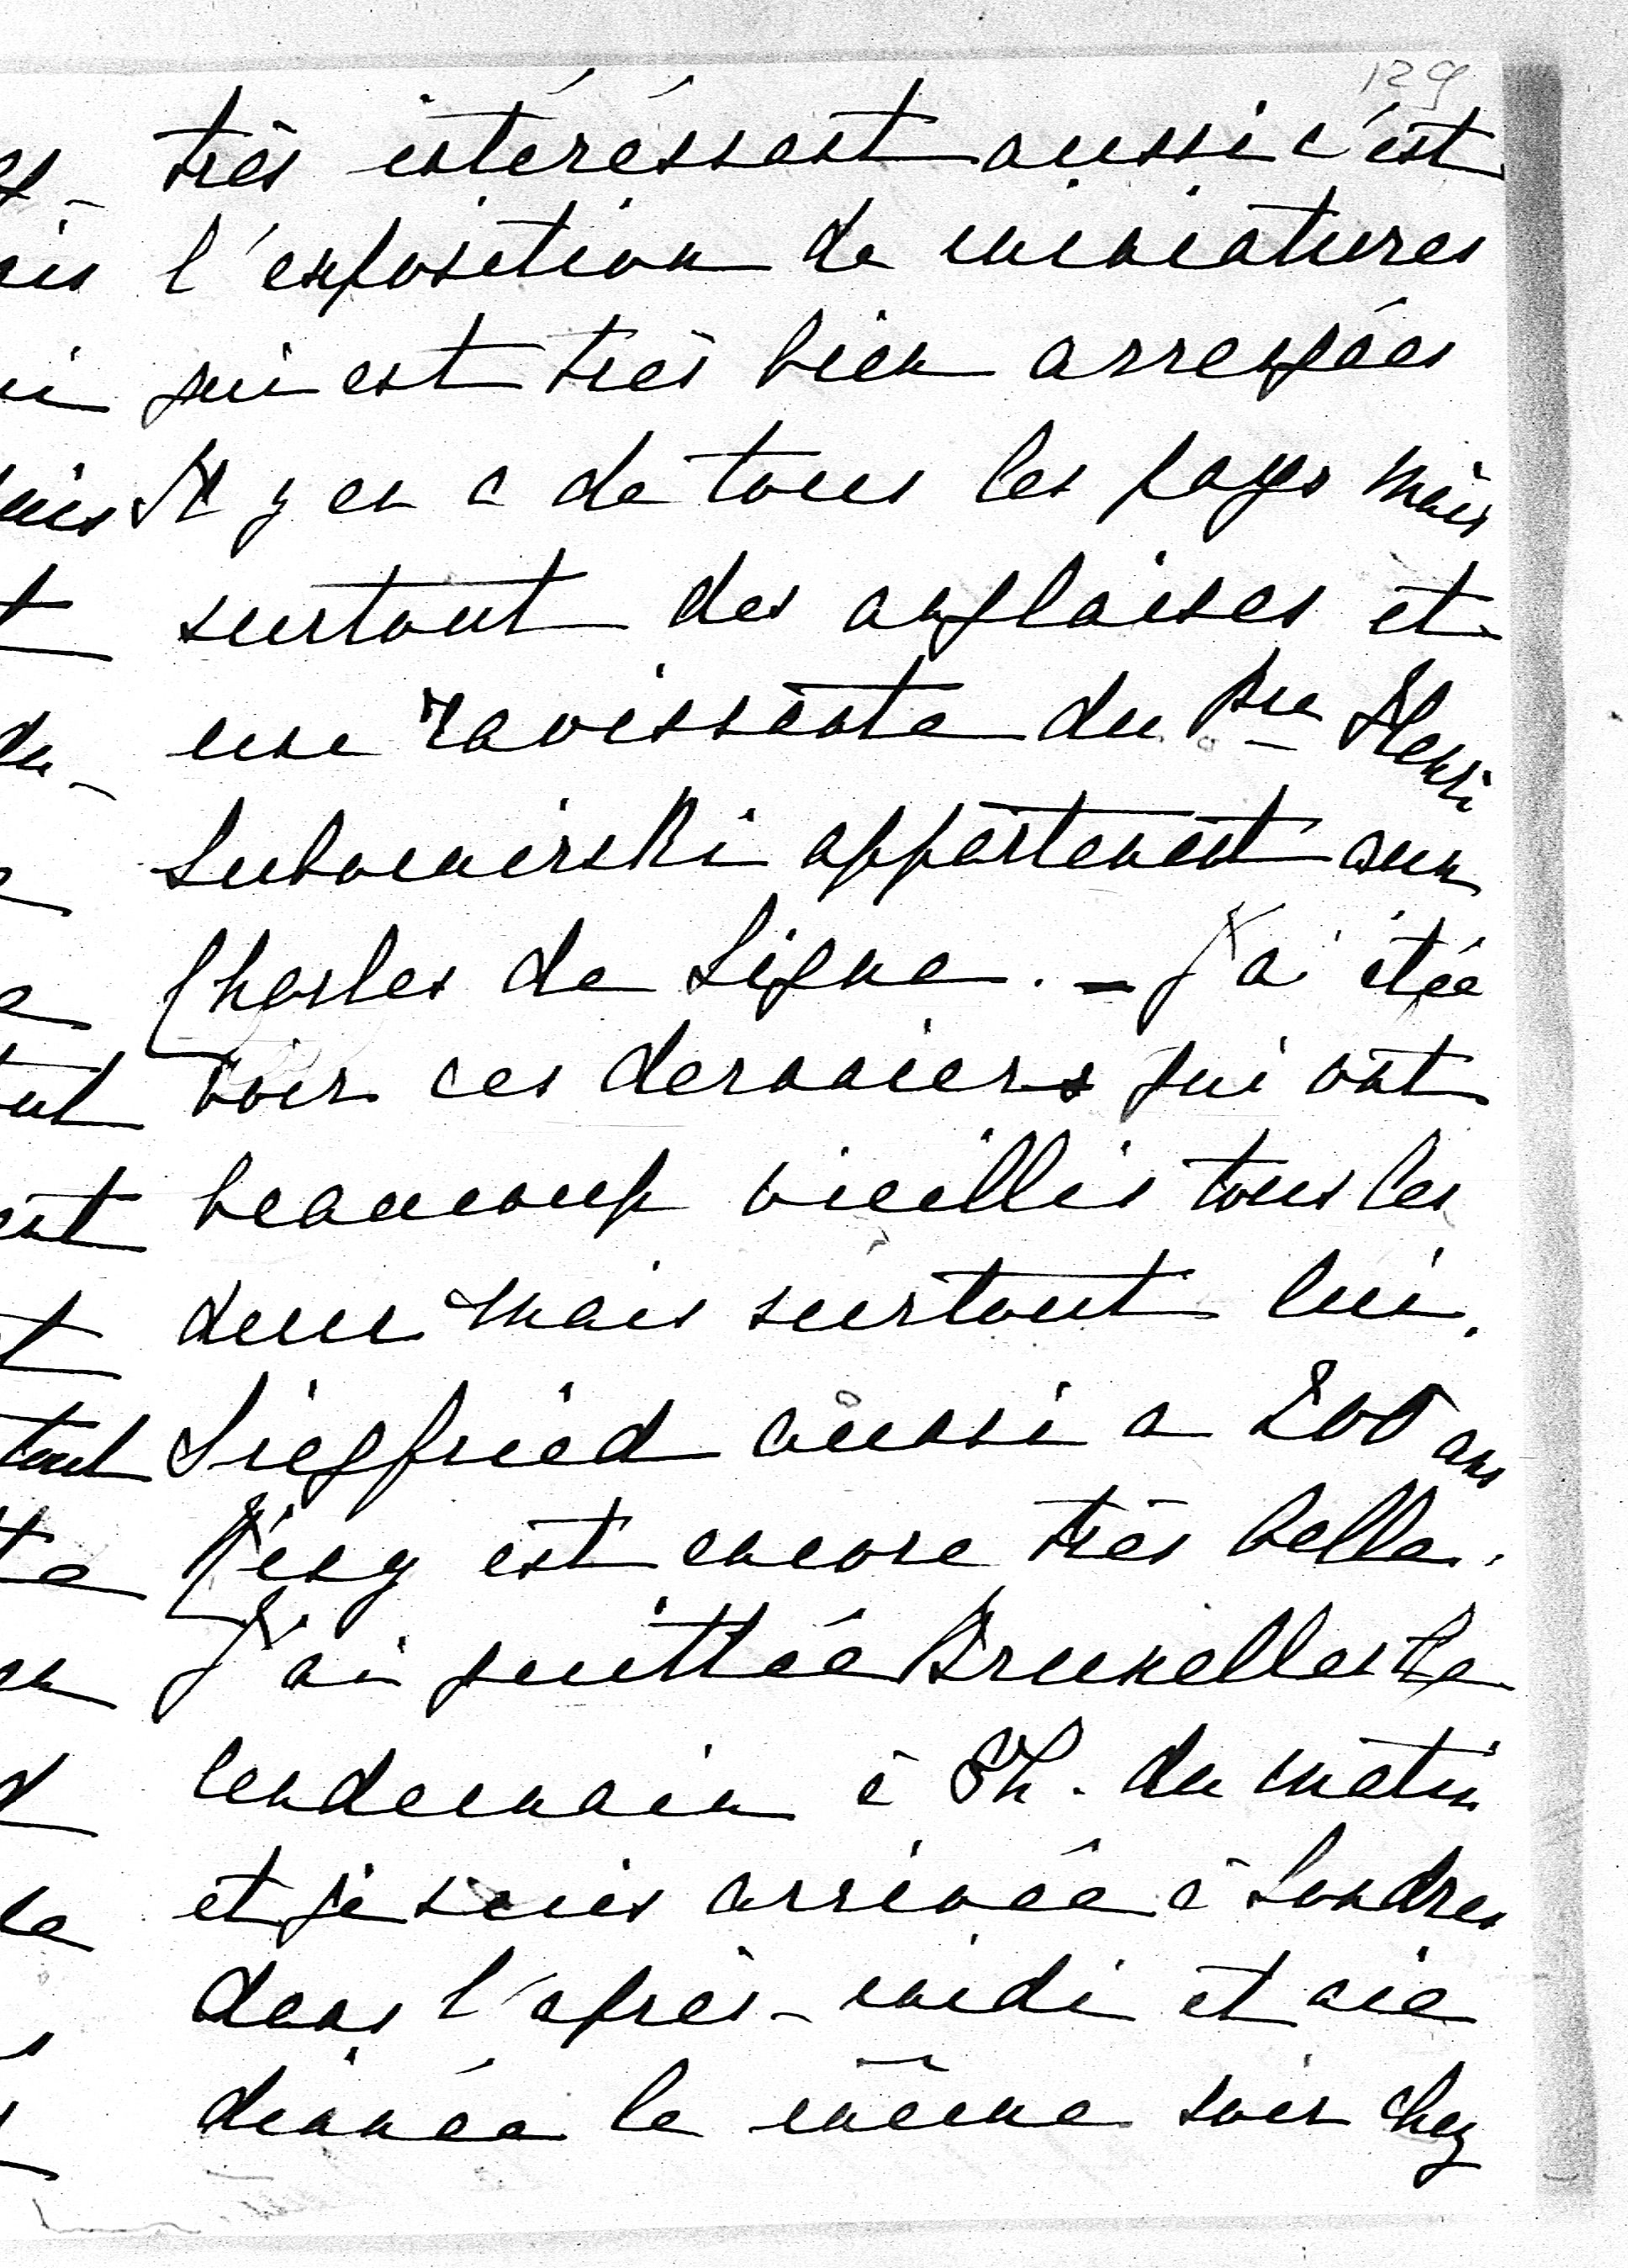 129
très intéréssant aussi c'est
l'exposition de miniatures
qui est très bien arrengées
Il y en a de tous les pays mais
surtout des anglaises et
une ravissante du Pce Henri
Lubomirski appartenant aux
Charles de Ligne. – J'ai étée
voir ces derniers qui ont
beaucoup vieillis tous les
deux mais surtout lui.
Siegfried aussi a 200 ans
est encore très belle.
J'ai quittée Bruxelles le
lendemain à 8h. du matin
et je suis arrivée à Londres
dans l'après-midi et aie
dinnée le même soir chez